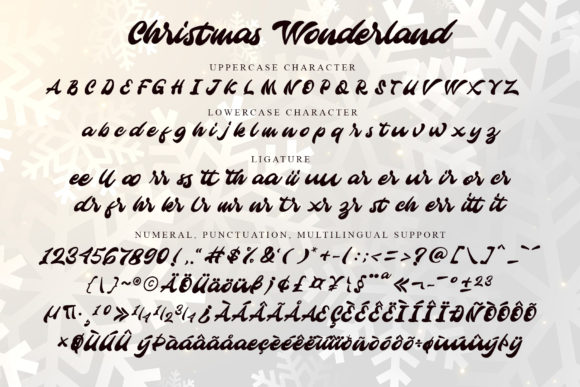 Christmas Wonderland
UPPERCASE CHARACTER
A B C D E F G H I J K L M N O P Q R S T U V W X Y Z
LOWERCASE CHARACTER
a b c d e f g h i j k l m n o p q r s t u v w x y z
LIGATURE
ee ll oo rr ss tt th aa ii uu ar er ur ir or cr
dr fr hr kr lr mr nr tr xr zr st ch err itt it
NUMERAL, PUNCTUATION, MULTILINGUAL SUPPORT
1234567890 { , . “ # $ % & ' ( ) * + - ( : ; < = > ? @ [ \ ] ^ _ ¨ ˘
{ \ } ~ ® © Ä Ö Ü ä ö ü ß ¡ ¢ £ ¤ ¥ ¦ § ¨ ª « ¬ - ¯ ° ± 2 3
µ ¶ · ¸ ¹ º » ¼ ½ ¾ ¿ À Á Â Ã Å Æ Ç È É Ê Ë Ì Í Î Ï Ð Ñ Ò Ó Ô Õ
× Ø Ù Ú Û Ý Þ à á â ã å æ ç è é ê ë ì í î ï ð ñ ò ó ô õ ÷ ø ù ú û ý þ ÿ